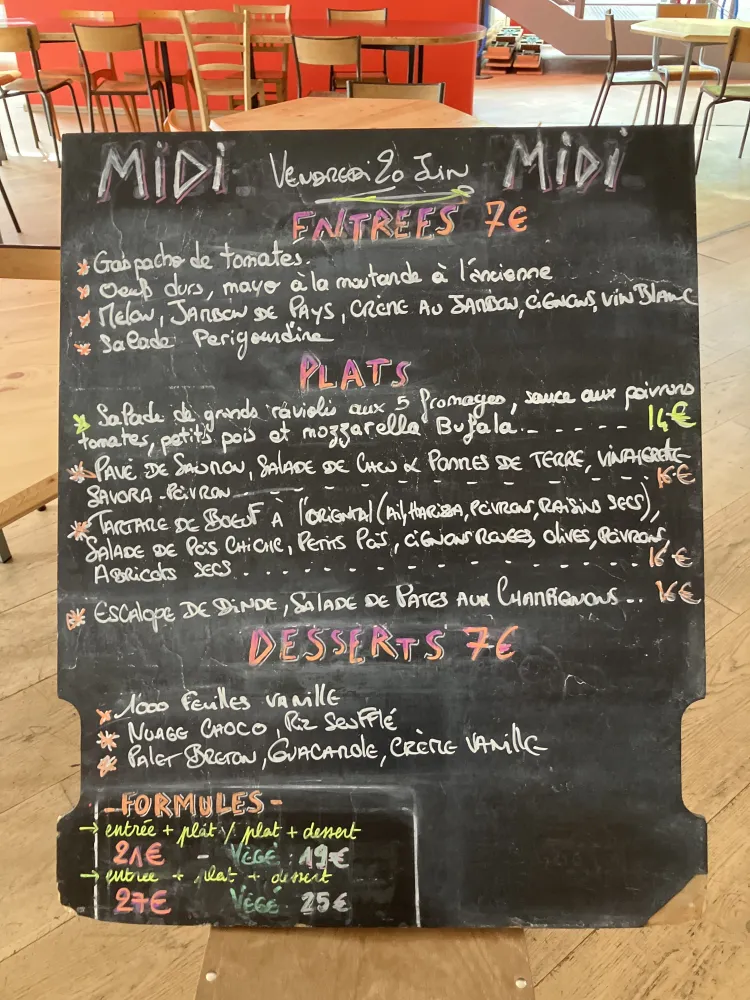 MiDi VENDREDI 20 JUIN MiDi
ENTREES 7€
* Gaspacho de tomates.
* Oeufs durs, mayo à la moutarde à l'ancienne
* MELON, JAMBON DE PAYS, CRÈME AU JAMBON, OIGNONS, VIN BLANC
* Salade Perigourdine
PLATS
* Salade de grands raviolis aux 5 fromages, sauce aux poivrons
tomates, petits pois et mozzarella Bufala.----- 14€
* PAVÉ DE SAUMON, SALADE DE CHOU & POMMES DE TERRE, VINAIGRETTE
SAVORA-POIVRON 16€
* TARTARE DE BOEUF À l'ORIENTAL (Ail, HARISSA, POIVRONS, RAISINS SECS),
SALADE DE POIS CHICHE, PETITS POIS, OIGNONS ROUGES, OLIVES, POIVRONS,
ABRICOTS SECS.......... 16€
* ESCALOPE DE DINDE, SALADE DE PATES AUX CHAMPIGNONS... 16€
DESSERTS 7€
* 1000 FEUILLES VANILLE
* NUAGE CHOCO, RIZ SOUFFLÉ
* PALET BRETON, GUACAMOLE, CRÈME VANILLE
-FORMULES-
→ entrée + plat / plat + dessert
21€ - VÉGÉ: 19€
→ entrée + plat + dessert
27€ VÉGÉ: 25€